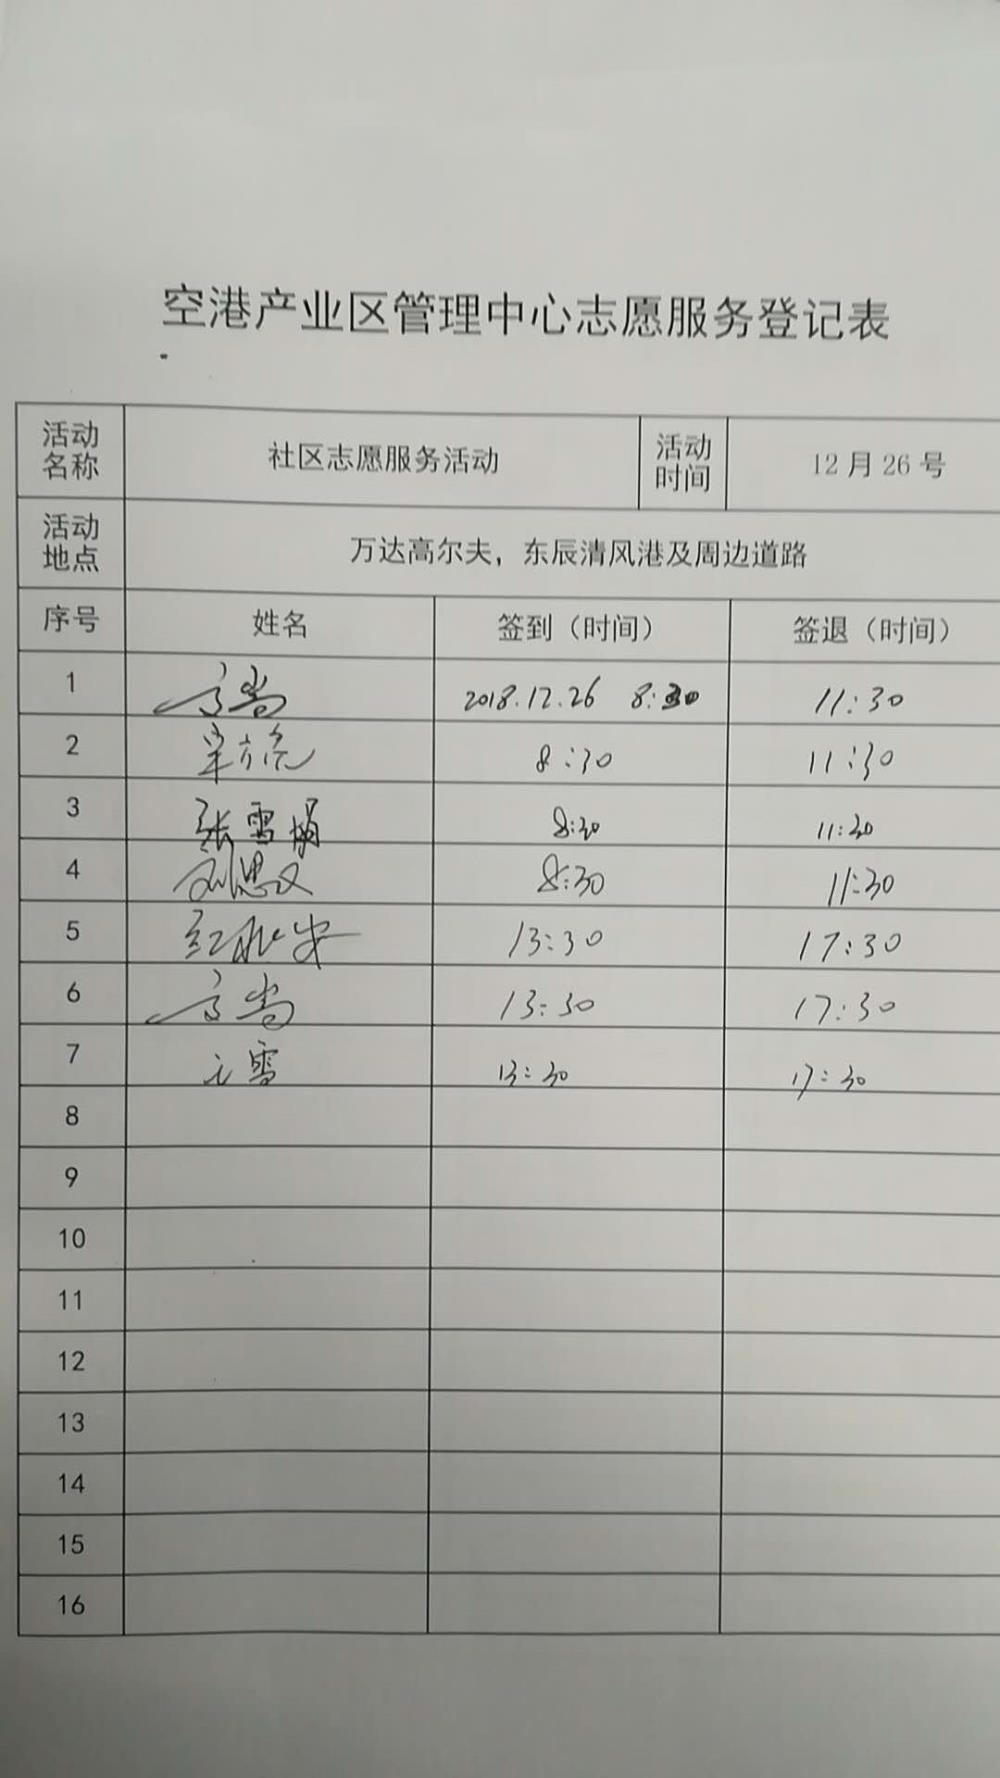 空港产业区管理中心志愿服务登记表
活动名称 社区志愿服务活动 活动时间 12月26号
活动地点 万达高尔夫，东辰清风港及周边道路
序号 姓名 签到（时间） 签退（时间）
1 2018.12.26 8:30 11:30
2 8:30 11:30
3 张雪娟 8:30 11:30
4 刘思文 8:30 11:30
5 13:30 17:30
6 13:30 17:30
7 13:30 17:30
8
9
10
11
12
13
14
15
16